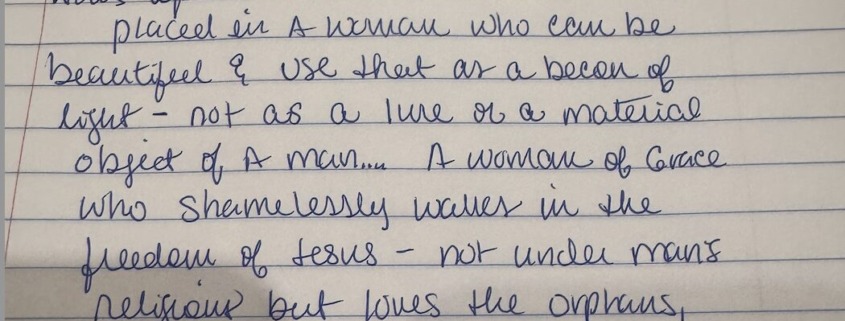 placed in A woman who can be
beautifeel & use that as a becon of
light - not as a lure or a material
object of A man... A woman of Grace
who shamelessly walks in the
freedom of Jesus - not under man's
religious but loves the orphans,